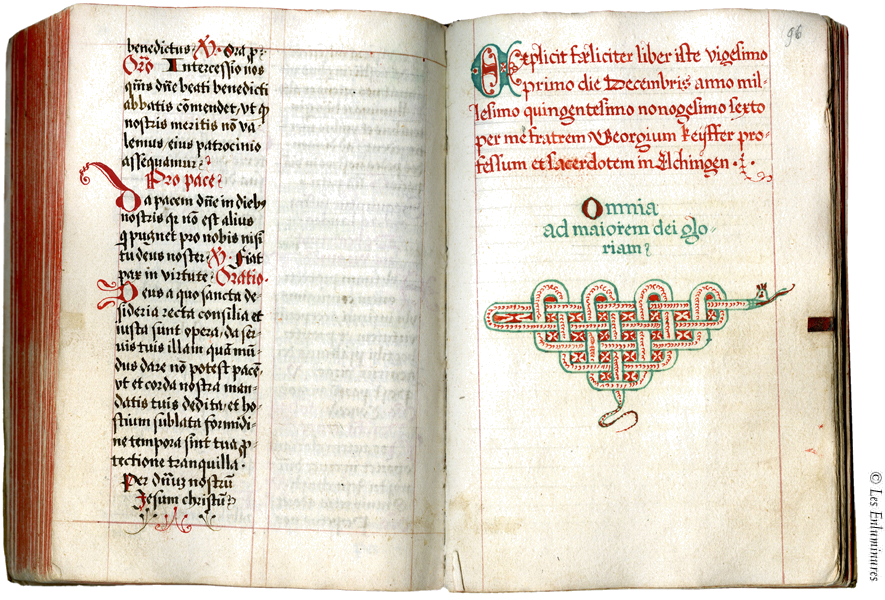 benedictus · V. Ora p̄·
Or̄o Intercessio nos
qm̄s dn̄e beati benedicti
abbatis cōmendet, ut q̄
nostris meritis nō va-
lemus, eius patrocinio
assequamur
Pro pace
Da pacem dn̄e in dieb9
nostris qr nō est alius
q̄ pugnet pro nobis nisi
tu deus noster · V. Fiat
pax in virtute · Oratio·
Deus a quo sancta de-
sideria recta consilia et
iusta sunt opera, da ser-
uis tuis illam quā mū-
dus dare nō potest pacē·
vt et corda nostra man-
datis tuis dedita, et ho-
stium sublata formidi-
ne tempora sint tua p̄-
tectione tranquilla ·
Per dn̄m nostrū
Jesum christū
96
Explicit fæliciter liber iste vigesimo
primo die Decembris anno mil-
lesimo quingentesimo nonogesimo sexto
per me fratrem Georgium Keijffer pro-
fessum et sacerdotem in Elchingen ·
Omnia
ad maiorem dei glo-
riam
© Les Enluminures